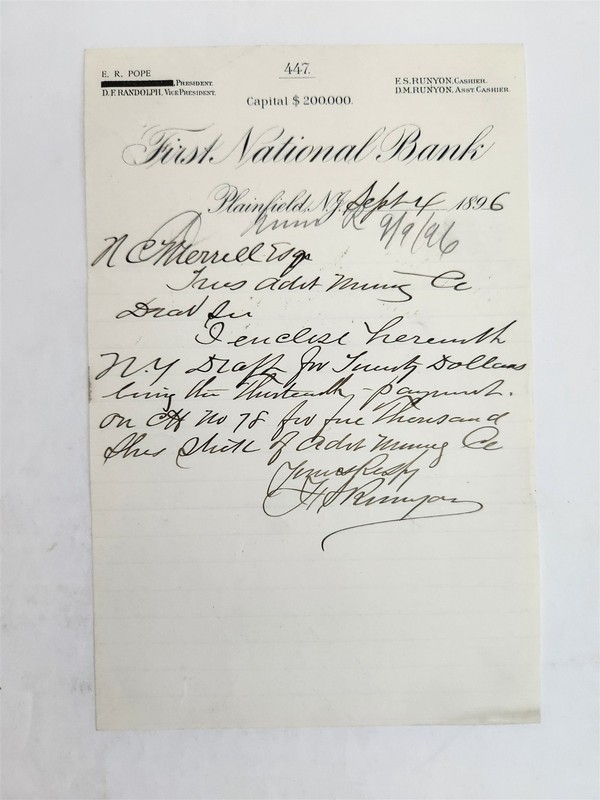 E. R. POPE
, PRESIDENT.
D. F. RANDOLPH, VICE PRESIDENT.
447.
Capital $200,000.
F. S. RUNYON, CASHIER.
D. M. RUNYON, ASST CASHIER.
First National Bank
Plainfield, N.J. Sept 4 1896
9/9/96
N C Merrill Esq
Tres Adit Mining Co
Dear Sir
I enclose herewith
N.Y Draft for Twenty Dollars
being the Thirteenth payment.
on Ctf No 78 for five Thousand
Shes Stock of Adit Mining Co
Yours Respy
F S Runyon